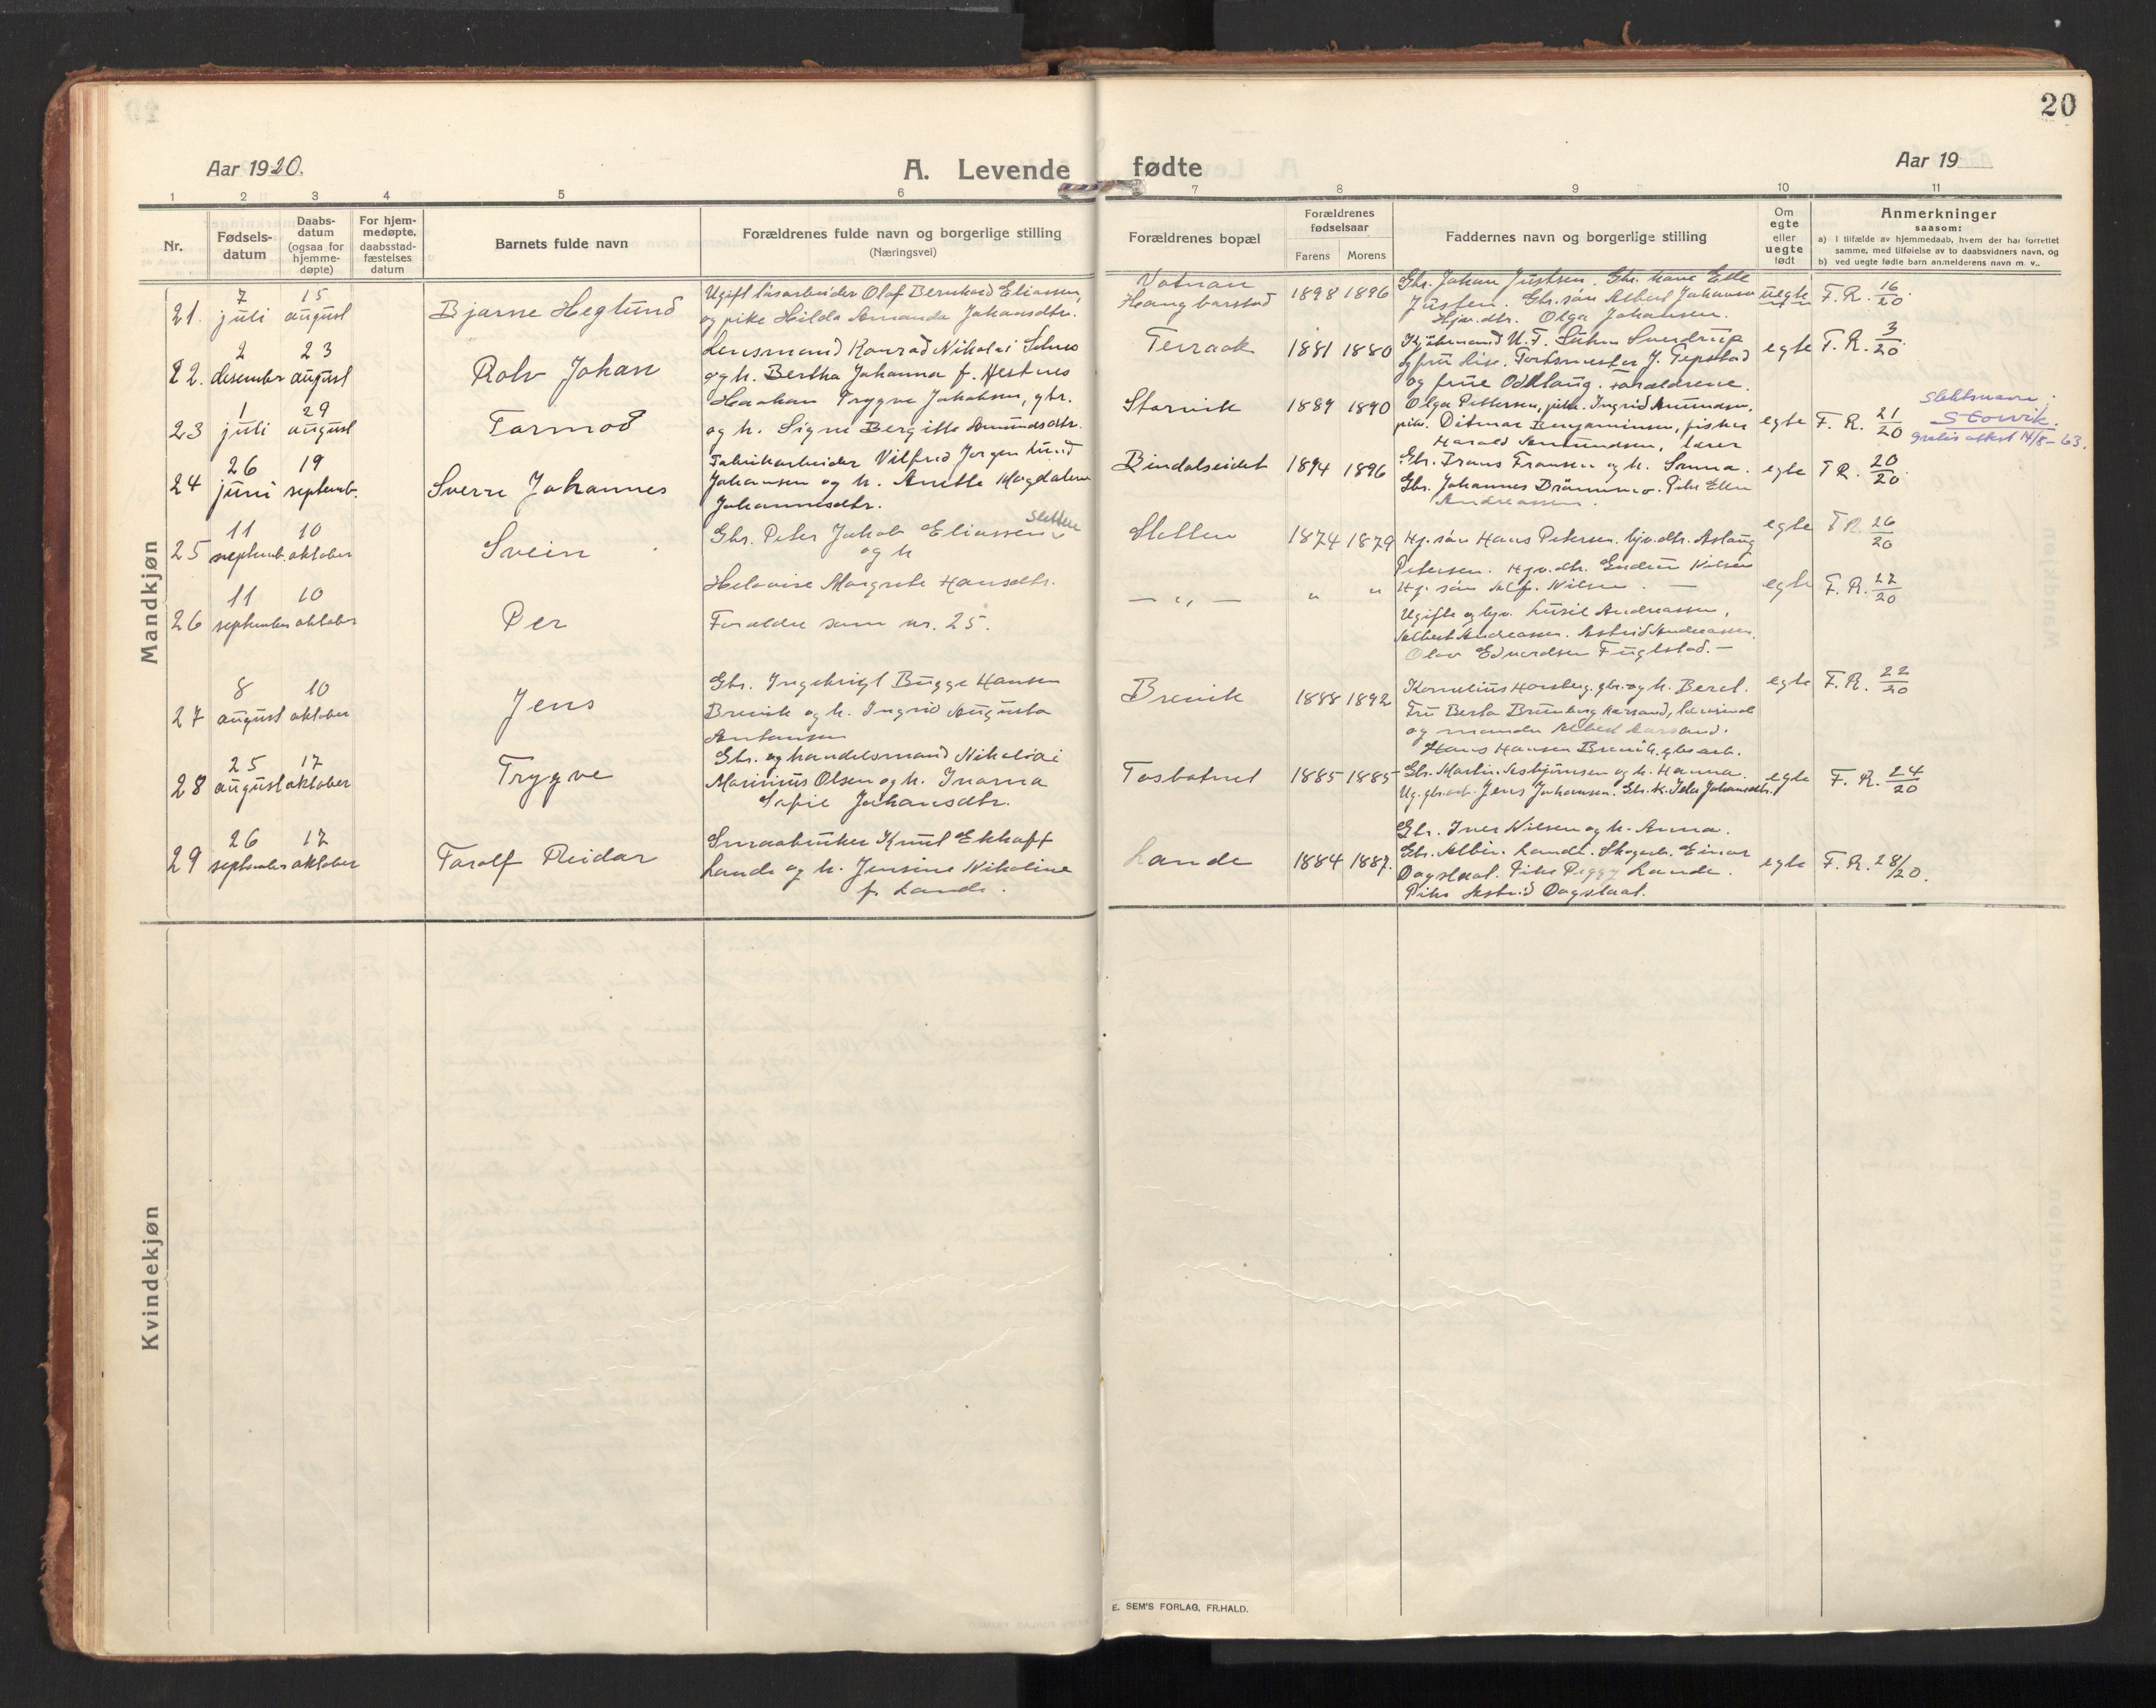 20
Aar 1920.
A. Levende fødte
Aar 19
1 2 3 4 5 6 7 8 9 10 11
Nr.
Fødsels-
datum
Daabs-
datum
(ogsaa for
hjemme-
døpte)
For hjem-
medøpte,
daabsstad-
fæstelses
datum
Barnets fulde navn
Forældrenes fulde navn og borgerlige stilling
(Næringsvei)
Forældrenes bopæl
Forældrenes
fødselsaar
Farens Morens
Faddernes navn og borgerlige stilling
Om
egte
eller
uegte
født
Anmerkninger
saasom:
a) i tilfælde av hjemmedaab, hvem der har forrettet
samme, med tilføielse av to daabsvidners navn, og
b) ved uegte fødte barn anmelderens navn m. v..
Mandkjøn
21. 7 juli 15 august
Bjarne Heglund
Ugift løsarbeider Olaf Bernhard Eliassen,
og pike Hilda Amanda Johansdtr.
Haugbarstad
1898 1896
Gbr. Johan Justsen. Gbr. kone Elle
Justsen. Gbr. søn Albert Johansen
Hjv. dtr. Olga Johansen.
uegte
F. R. 16/20.
22. 2 desember 23 august
Rolv Johan
Lensmand Konrad Nikolai
og h. Bertha Johanna f. Hestnes
Terraak
1881 1880
Kjøbmand U. F. Suhm Sverdrup
og fru Lise. J.
og frue Oddlaug. Forældrene.
egte
F. R. 3/20.
23 1 juli 29 august
Tormod
Haakon Trygve Jakobsen, gbr.
og h. Signe Bergitte Amundsdtr.
Storvik
1889 1890
Olga Pettersen, pike. Ingrid Amundsen,
pike. Ditmar Benjaminsen, fisker
Harald Amundsen, lærer
egte
F. R. 21/20
Slektsnavn:
Storvik.
gratis attest 14/8-63.
24 26 juni 19 septemb.
Sverre Johannes
Fabrikarbeider Vilfred Jørgen Lund
Johansen og h. Anette Magdalena
Johannesdtr.
Bindalseidet
1894 1896
Gbr. Frans Fransen og h.
Gbr. Johannes Pike Ellen
Andreassen.
egte
F R. 20/20.
25 11 septemb. 10 oktober
Svein
Gbr. Peter Jakob Eliassen Sletten
og h
Helovise Margrete Hansdtr.
Sletten
1874 1879
Hj. søn Hans Petersen. hjv. dtr. Aslaug
Petersen. Hjv. dtr. Nilsen
egte
F R. 26/20
26 11 september 10 oktober
Per
Forældre som nr. 25.
— „ —
„ „
Hj. søn Alf. Nilsen. —
Ugifte og hjv. Andreassen,
Albert Andreassen. Astrid Andreassen.
Olav Edvardsen Fuglstad. —
egte
F. R. 22/20
27 8 august 10 oktober
Jens
Gbr. Ingebrigt Bugge Hansen
Brevik og h. Ingrid Augusta
Antonsen
Brevik
1888 1892
Kornelius Horsberg. gbr. og h. Beret.
Fru Berta Brunborg Aarsand,
og manden Albert Aarsand.
Hans Hansen Brevik. gbr. arb.
egte
F. R. 22/20
28 25 august 17 oktober
Trygve
Gbr. og handelsmand Nikolai
Marinius Olsen og h. Inanna
Sofie Johansdtr.
Tosbotnet
1885 1885
Gbr. Martin Asbjørnsen og h. Hanna.
Ug. gbr. arb. Jens Johansen. Gbr. k. Ida Johansdtr.
egte
F. R. 24/20
29 26 september 17 oktober
Toralf Reidar
Smaabruker Knut Ekhoff
Lande og h. Jensine Nikoline
f. Lande.
Lande
1884 1887.
Gbr. Iver Nilsen og h. Anna.
Gbr. Albin. Lande. Skogarb. Einar
Dagslaat. Pike Peggy Lande.
Pike Astrid Dagslaat.
egte
F. R. 28/20.
Kvindekjøn
E. SEM'S FORLAG, FR.HALD.